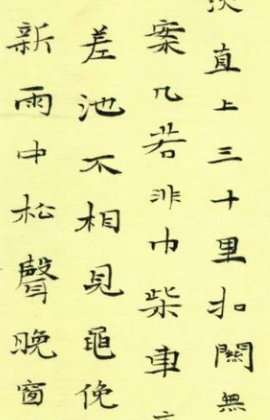 直上三十里扣關無
案几若非巾柴車
差池不相見黽俛
新雨中松聲晚窗